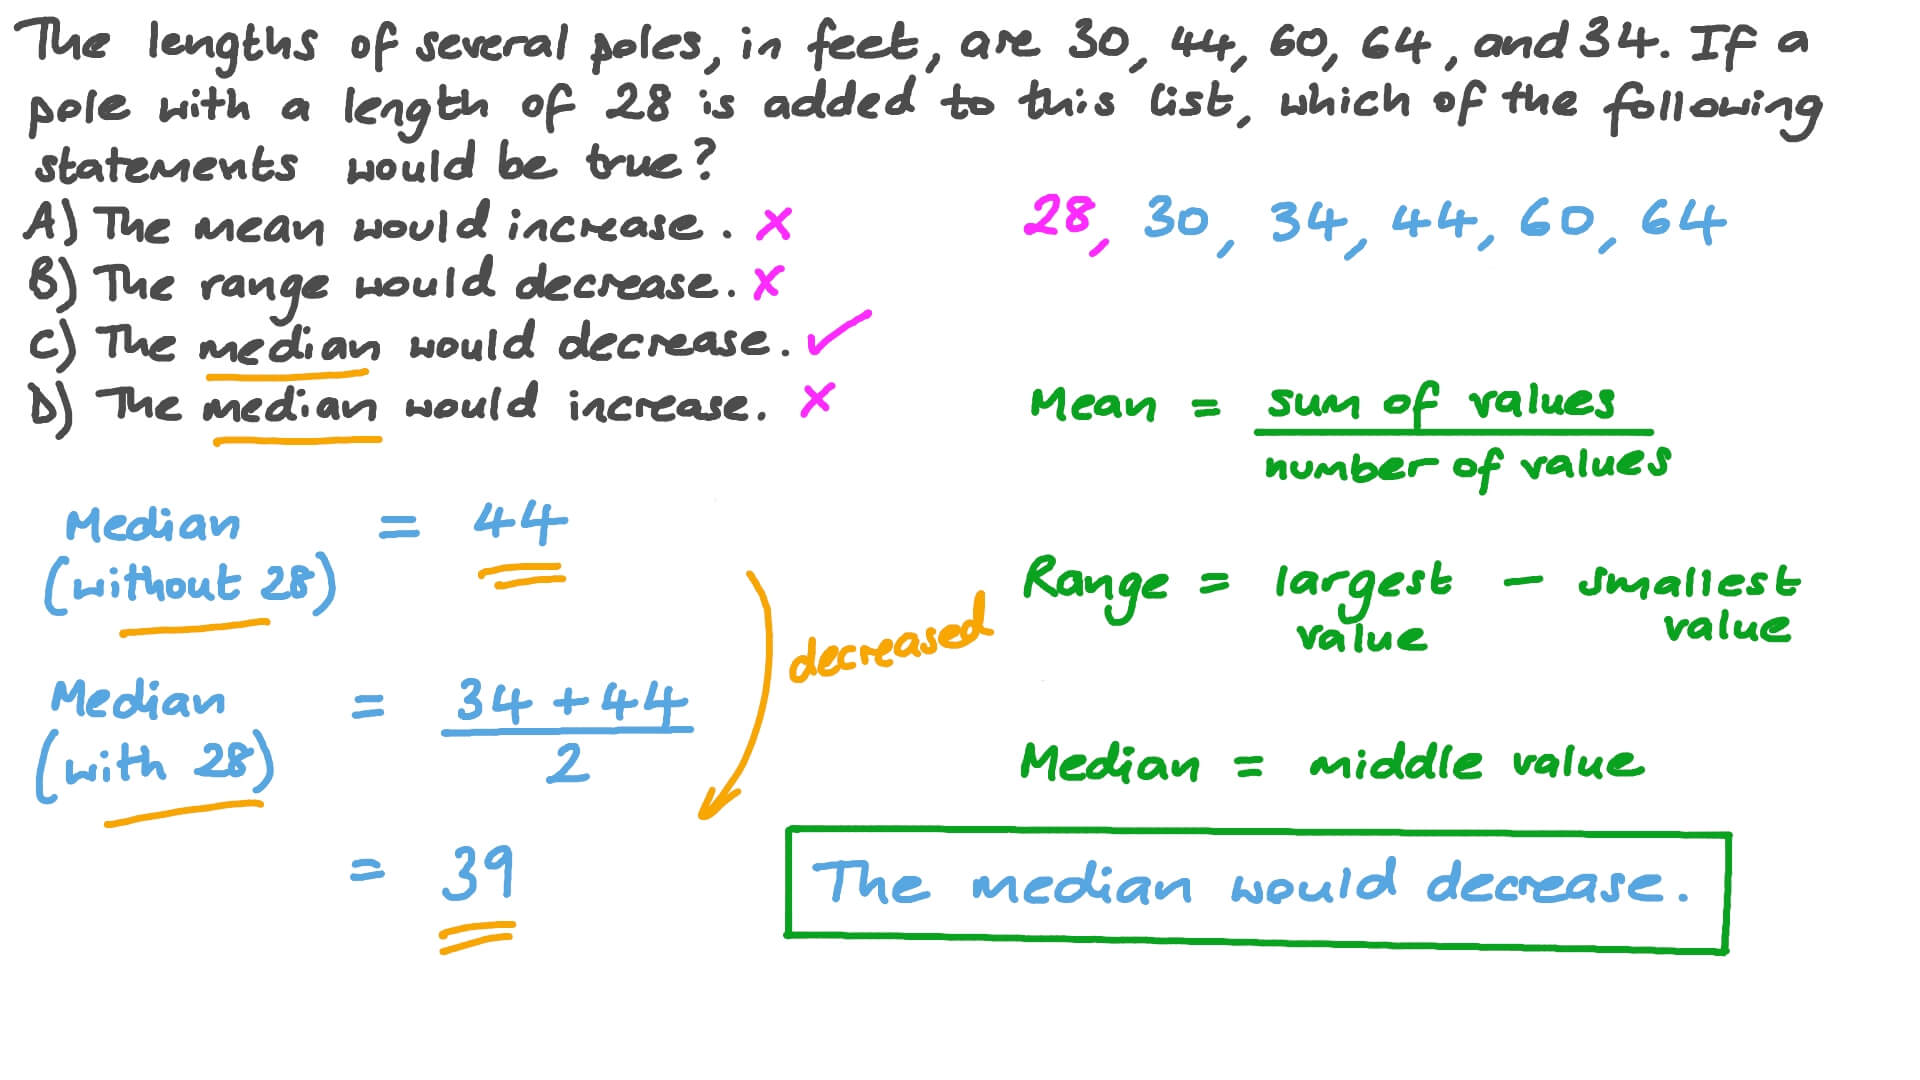 The lengths of several poles, in feet, are 30, 44, 60, 64, and 34. If a
pole with a length of 28 is added to this list, which of the following
statements would be true?
A) The mean would increase. ×
B) The range would decrease. ×
C) The median would decrease. ✓
D) The median would increase. ×
28, 30, 34, 44, 60, 64
Mean = sum of values
number of values
Median = 44
(without 28)
decreased
Range = largest - smallest
value value
Median = 34 + 44
(with 28) 2
= 39
Median = middle value
The median would decrease.